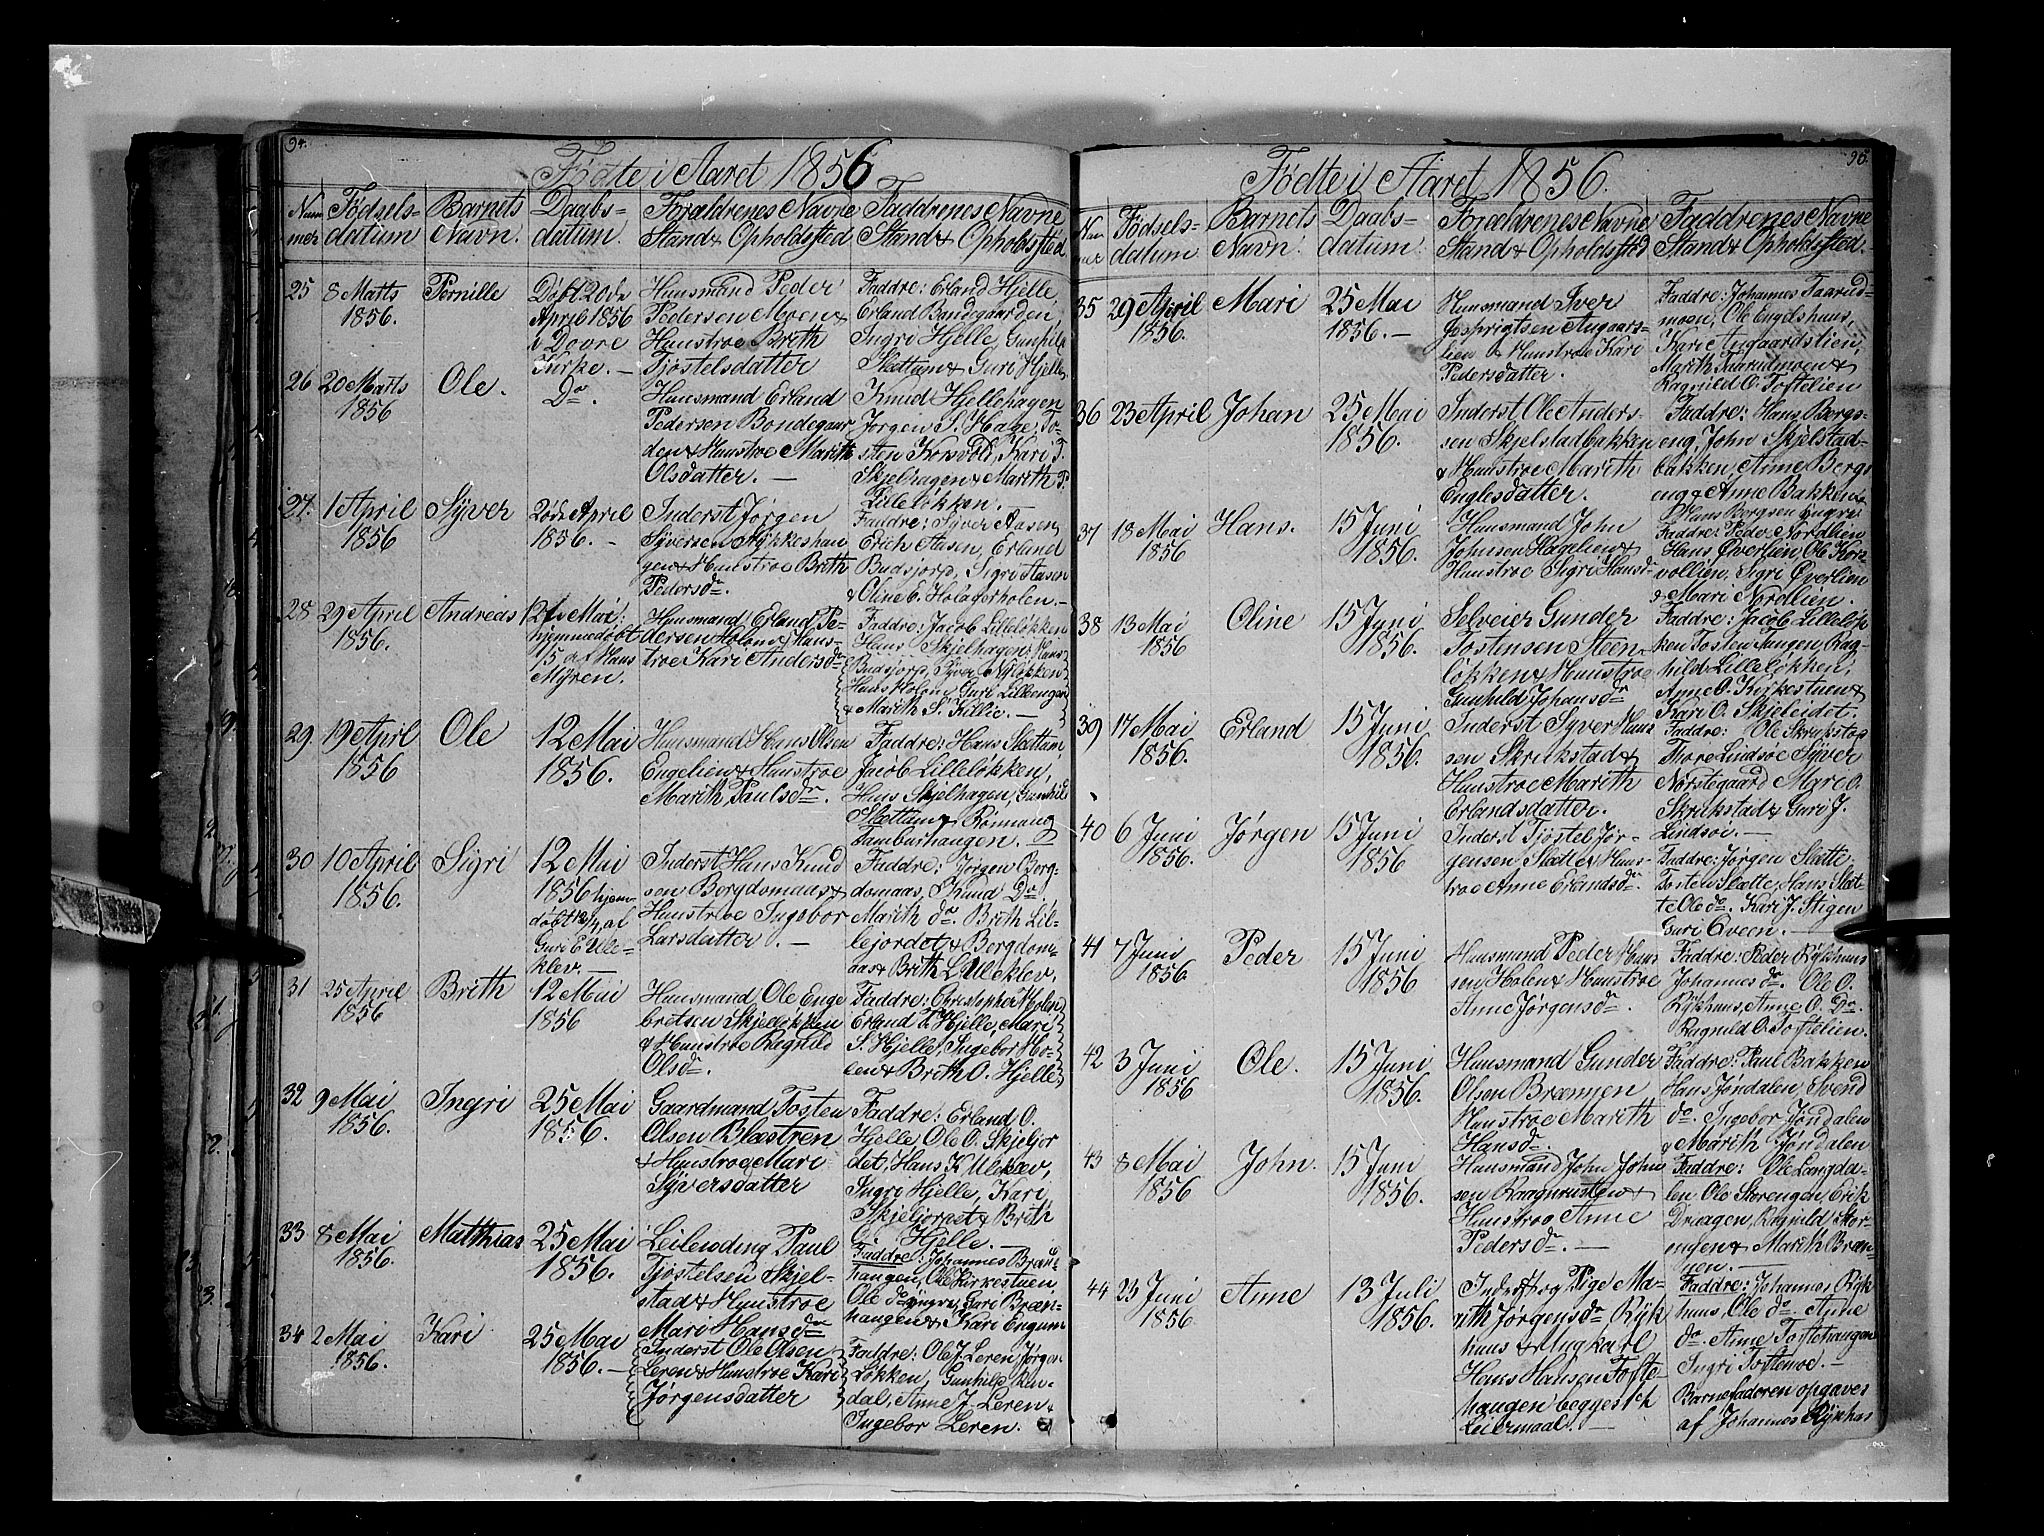 94.
Fødte i Aaret 1856
Num
mer
Fødsels-
datum
Barnets
Navn.
Daabs-
datum.
Forældrenes Navne
Stand & Opholdssted
Faddrenes Navne
Stand & Opholdssted
25
8 Marts
1856.
Pernille
Døbt 20de
April 1856
i Dovre
Kirke. —
Huusmand Peder
Pedersen Moen &
Hustroe Brith
Tjøstelsdatter
Faddre: Erland Hjelle,
Erland Bondegaarden,
Ingri Hjelle, Gunhild
Slettum & Guri Hjelle
26
20 Marts
1856
Ole.
Do.
Huusmand Erland
Pedersen Bondegaar
den & Hustroe Marith
Olsdatter. —
Knud Hjellehagen
Jørgen S. Hage, To-
sten Korsvold, Kari T.
Skjelhagen & Marith P.
Lilleløkken.
27.
1 April
1856
Syver
20de April
1856. -
Inderst Jørgen
Syversen Nykkeshau
gen & Hustroe Brith
Pedersdr.
Faddre: Syver Aasen,
Erich Aasen, Erland
Budsjord, Sigri Aasen
& Oline E. Holagerholen. —
28
29 April
1856.
Andreas
12te Mai:
hjemmedøbt
1/5 af Hans
Myren.
Huusmand Erland Pe-
dersen Holen & Hus-
troe Kari Andersdr
Faddre: Jacob Lilleløkken
Hans Skjelhagen, Hans
Budsjord, Syver Nyløkken
Hans Holen, Guri Lillengen
& Marith S. Killie. —
29.
19 April
1856
Ole
12 Mai
1856.
Huusmand Hans Olsen
Engelien & Hustroe
Marith Paulsdr.
Faddre: Hans Slettum,
Jacob Lilleløkken,
Hans Skjelhagen, Gunhild
Slettum & Rønnaug
Tamburhaugen.
30
10 April
1856.
Sigri
12 Mai
1856 hjem-
døbt 12/4 af
Guri E Ule-
klev. —
Inderst Hans Knud
sen Bergdomaas &
Hustroe Ingebor
Larsdatter. —
Faddre: Jørgen Berg-
domaas, Knud Do
Marith do. Brith Lil-
lejordet & Bergdom-
aas & Brith L Uleklev.
31
25 April
1856
Brith
12 Mai
1856
Huusmand Ole Enge
bretsen Skjelløkken
& Hustroe Ragnild
Olsdr.
Faddre: Christopher Holen
Erland T. Hjelle, Mari
S. Hjelle, Ingebor Ho-
len & Brith O. Hjelle
32
9 Mai
1856.
Ingri
25 Mai
1856.
Gaardmand Tosten
Olsen Blæstren
& Hustroe Mari
Syversdatter
Faddre: Erland O.
Hjelle, Ole O. Skjeljor
det, Hans K Uleklev,
Ingri Hjelle, Kari
Skjeljordet & Brith
Hjelle. —
33
8 Mai
1856.
Matthias
25 Mai
1856.
Leilending Paul
Tjøstelsen Skjel-
stad & Hustroe
Mari Hansdr
Faddre: Johannes Bræn-
haugen, Ole Kirkestuen
Ole do Guri Bræn-
haugen & Kari Engum
34
2 Mai
1856.
Kari
25 Mai
1856. —
Inderst Ole Olsen
Leren & Hustroe Kari
Jørgensdatter
Faddre: Ole J. Leren, Jørgen
Løkken, Gunhild
dal, Anne J. Leren &
Ingebor Leren.
95.
Fødte i Aaret 1856.
Num
mer
Fødsels-
datum
Barnets
Navn.
Daabs-
datum.
Forældrenes Navne
Stand & Opholdssted
Faddrenes Navne
Stand & Opholdssted.
35
29 April
1856.
Mari
25 Mai
1856. —
Huusmand Iver
Angaars-
lien & Hustroe Kari
Pedersdatter.
Faddre: Johannes Taarud-
moen, Ole Engelshuus,
Kari Angaardslien,
Marith Taarudmoen &
Ragnild O. Toftelien
36
23 April
Johan
25 Mai
1856.
Inderst Ole Anders-
sen Skjelstadbakken
& Hustroe Marith
Englesdatter.
Faddre: Hans Bergs-
eng, John Skjelstad-
bakken, Anne Bergs
eng & Anne Bakken &
Hans Bergseng
37
18 Mai
1856
Hans.
15 Juni
1856.
Huusmand John
Johnsen Hagelien &
Hustroe Sigri Hansdr
Faddre: Peder Nordlien
Hans Øverlien, Ole Kors
vollien, Sigri Øverlien
& Mari Nordlien.
38
13 Mai
1856
Oline
15 Juni
1856.
Selveier Gunder
Tostensen Steen-
løkken & Hustroe
Gunhild Johansdr
Faddre: Jacob Lilleløk
ken Tosten Tangen, Rag-
hild Lilleløkken,
Anne O. Kirkestuen &
Kari O. Skjeleidet.
39
17 Mai
1856.
Erland
15 Juni
1856.
Inderst Syver Hans
sen Skrikstad &
Hustroe Marith
Erlandsdatter.
Faddre: Ole Skrikstad
Thore Lindsøe Syver
Norstegaard Mari O.
Skrikstad & Guri J.
Lindsøe. —
40
6 Juni
1856.
Jørgen
15 Juni
1856
Inderst Tjøstel Jør-
gensen Slette & Hus-
troe Anne Erlandsdr.
Faddre: Jørgen Slette
Tosten Slette, Hans Slet-
te Ole do. Kari J. Stigen
Guri Øveen. —
41
7 Juni
1856
Peder
15 Juni
1856
Huusmand Peder Hans
sen Holen & Hustroe
Anne Jørgensdr.
Faddre: Peder Rykhuus
Johannes do. Ole O.
Rykhuus, Anne O. Do
Ragnild O. Toftelien.
42
3 Juni
1856
Ole.
15 Juni
1856.
Huusmand Gunder
Olsen Brænnen
Hustroe Marith
Hansdr.
Faddre: Paul Bakken
Hans Jøndalen, Evend
do. Ingebor Jøndalen
& Marith Jøndalen
43
8 Mai
1856
John.
15 Juni
1856.
Huusmand John John
sen Raagrusten &
Hustroe Anne
Pedersdr. —
Faddre: Ole Langda-
len Ole Storengen, Erik
Drægen, Ragnild Stor-
engen & Marith Bræn-
nen. —
44
23 Juni
1856
Anne
13 Juli
1856.
Inderst og Pige Ma-
rith Jørgensdr Ryk
huus & Ungkarl
Hans Hansen Tofte-
haugen begges 1ste
Leiermaal. —
Faddre: Johannes Ryk
huus, Ole do. Anne
do. Anne Toftehaugen
Ingri Toftemoe. —
Barnefaderen opgaves
af Johannes Rykhus